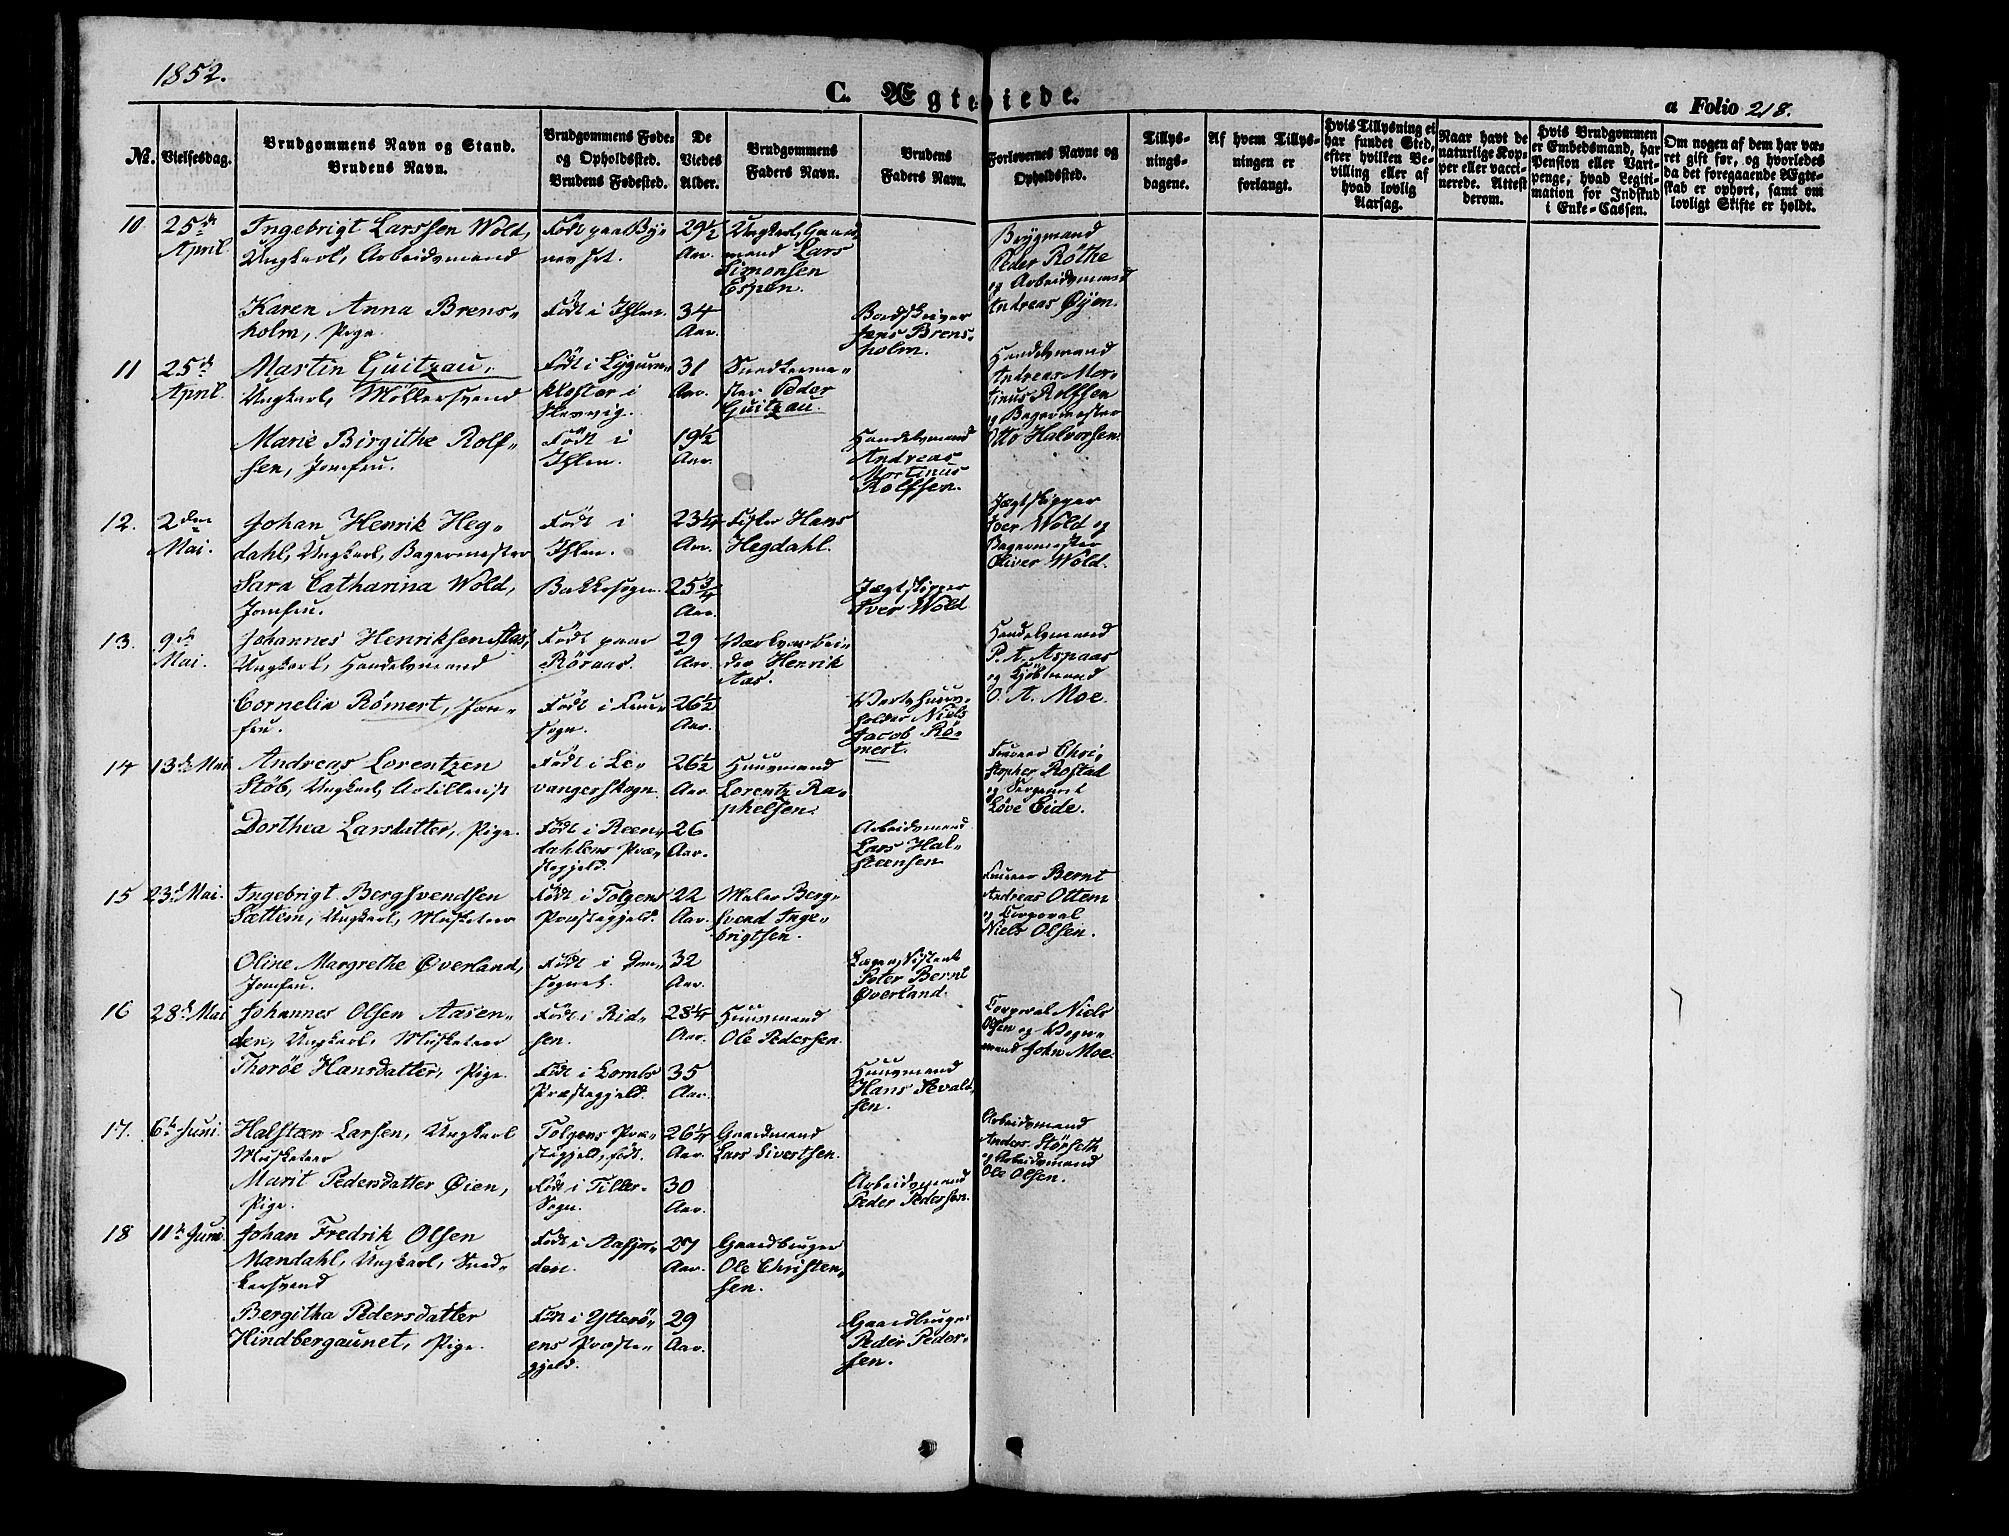 1852.
C. Ægteviede.
a Folio 218.
No.
Vielsesdag.
Brudgommens Navn og Stand.
Brudens Navn.
Brudgommens Føde-
og Opholdssted.
Brudens Fødested.
De
Viedes
Alder.
Brudgommens
Faders Navn.
Brudens
Faders Navn.
Forlovernes Navne og
Opholdssted.
Tillys-
nings-
dagene.
Af hvem Tillys-
ningen er
forlangt.
Hvis Tillysning ei
har fundet Sted,
efter hvilken Be-
villing eller af
hvad lovlig
Aarsag.
Naar havt de
naturlige Kop-
per eller vacci-
nerede. Attest
derom.
Hvis Brudgommen
er Embedsmand, har
Pension eller Vart-
penge, hvad Legiti-
mation for Indskud
i Enke-Cassen.
Om nogen af dem har væ-
ret gift før, og hvorledes
da det foregaaende Ægte-
skab er ophørt, samt om
lovligt Skifte er holdt.
10.
25de
April.
Ingebrigt Larssen Wold,
Ungkarl, Arbeidsmand
Født paa By-
nesset.
29½
Aar.
Ungkarl, Gaard-
mand Lars
Simonsen
Espen.
Bygmand
Peder Röthe
og Arbeidsmand
Andreas Øyen.
Karen Anna Brens-
holm, Pige.
Født i Ihlen.
34
Aar.
Jens Brens-
holm.
11
25de
April.
Martin Guitzau,
Ungkarl, Møllersvend
Født i Lygum-
kloster i
Slesvig.
31
Aar.
Snedkerme-
ster Peder
Guitzau.
Handelsmand
Andreas Mar-
tinus Rolfsen
og Bagermester
Otto Halvorsen.
Marie Birgithe Rolf-
sen, Jomfru.
Født i
Ihlen.
19½
Aar.
Handelsmand
Andreas
Martinus
Rolfsen.
12.
2den
Mai.
Johan Henrik Heg-
dahl, Ungkarl, Bagermester
Født i
Ihlen.
23¼
Aar.
Fisker Hans
Hegdahl.
Jægtskipper
Iver Wold og
Bagermester
Oliver Wold.
Sara Catharina Wold,
Jomfru.
Bakkesogn.
25¾
Aar.
Jægtskipper
Iver Wold
13.
9de
Mai.
Johannes Henriksen Aas,
Ungkarl, Handelsmand
Født paa
Röraas.
29
Aar.
Værksarbei-
der Henrik
Aas.
Handelsmand
P. A. Aspaas
og Kjöbmand
O. A. Moe.
Cornelia Römert, Jom-
fru.
Født i Frue-
sogn.
26½
Aar.
Vertshuus-
holder Niels
Jacob Rö-
mert.
14
13de Mai
Andreas Lorentzen
Stöb, Ungkarl, Artillerist
Født i Le-
vangerskogn.
26½
Aar
Huusmand
Lorentz Ra-
phelsen.
Fureer Chri-
stopher Rostad
og Sergeant
Löve Eide.
Dorthea Larsdatter, Pige.
Født i Reen-
dahlens Præ-
stegjeld.
26
Aar.
Arbeidsmand
Lars Hal-
steensen
15
23de Mai.
Ingebrigt Bergsvendsen
Sættem, Ungkarl, Musketeer
Født i Tolgens
Præstegjeld.
22
Aar.
Maler Berg-
svend Inge-
brigtsen.
Fureer Bernt
Andreas Ottem
og Corporal
Niels Olsen.
Oline Margrethe Øverland,
Jomfru.
Født i Dom-
sognet.
32
Aar.
Peter Bernt
Øverland.
16
28de Mai
Johannes Olsen Aasen-
den, Ungkarl, Musketeer
Født i Rid-
sen.
28¼
Aar.
Huusmand
Ole Pedersen.
Corporal Niels
Olsen og Vogn-
mand John Moe.
Thoröe Hansdatter, Pige.
Født i Lomls
Præstegjeld.
35
Aar.
Huusmand
Hans Sevald-
sen.
17.
6te Juni.
Halsteen Larsen, Ungkarl
Musketeer
Tolgens Præ-
stegjeld, født.
26¼
Aar.
Gaardmand
Lars Sivertsen.
Arbeidsmand
Anders Störseth
og Arbeidsmand
Ole Olsen.
Marit Pedersdatter Øien,
Pige.
Født i Tiller-
Sogn.
30
Aar.
Arbeidsmand
Peder Pedersen.
18
11te Juni
Johan Fredrik Olsen
Mandahl, Ungkarl, Sned-
kersvend
Født i Aafjor-
den.
27
Aar.
Gaardbruger
Ole Christen-
sen.
Bergitha Pedersdatter
Hindbergaunet, Pige.
Født i Ytterö-
ens Præste-
gjeld.
29
Aar.
Gaardbruger
Peder Peder-
sen.